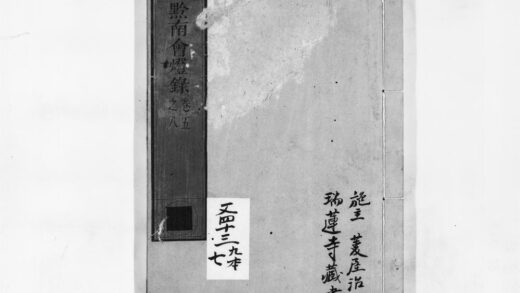 黔南會燈錄 卷五之八
施主 菱屋治
瑞蓮寺藏書
又四十三 九本
七